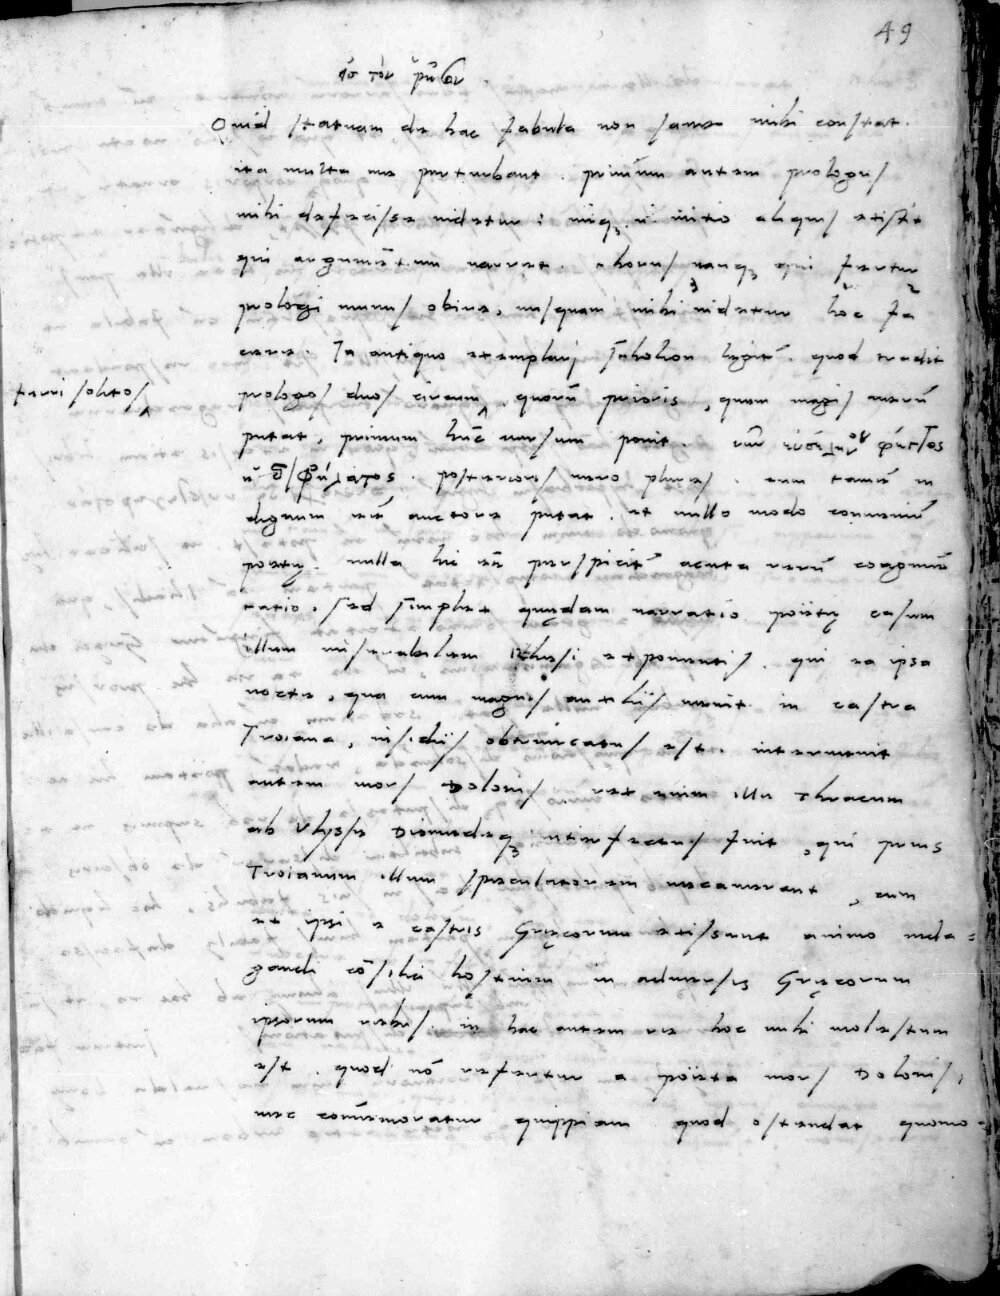 49
εἰς τὸν ῥῆσον
Quid statuam de hac fabula non sane mihi constat.
ita multa me perturbant. primum autem prologus
mihi defecisse videtur: neq; n. initio aliquis exstitit
qui argumẽtum narret. chorus namq; qui fertur
prologi munus obire, nusquam mihi videtur hoc fa
cere. In antiquo exemplari scholion legit̃. quod tradit
prologos duos circum
ferri solitos
, quorũ prioris, quem magis verũ
putat, primum hũc versum ponit. νῦν εὐσέληνον φέγγος
ἡ διφρήλατος. posterioris vero plures. eum tamẽ in
dignum eũ auctore putat. et nullo modo convenire
poetę. nulla hic eñ perspicit̃ acuta rerũ coagmẽ
tatio. sed simplex quędam narratio poëtę casum
illum miserabilem Rhesi exponentis. qui ea ipsa
nocte, qua cum magnis auxiliis venit in castra
Troiana, insidiis obtruncatus est. intervenit
autem mors Dolonis. rex enim ille Thracum
ab Ulysse Diomedeq; interfectus fuit, qui prius
Troianum illum speculatorem necaverant, cum
et ipsi e castris Gręcorum exissent animo inda=
gandi cõsilia hostium in adversis Gręcorum
ipsorum rebus. in hac autem re hoc mihi molestum
est. quod nõ refertur a poëta mors Dolonis,
nec commemoratur quippiam quod ostendat quomo=